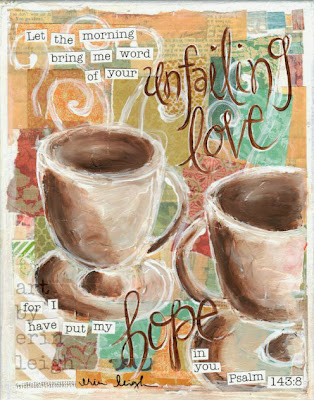 Let the morning
bring me word
of your
unfailing
love
for I
have put my
hope
in
you.
Psalm 143:8
art
by
erin
leigh
erin leigh